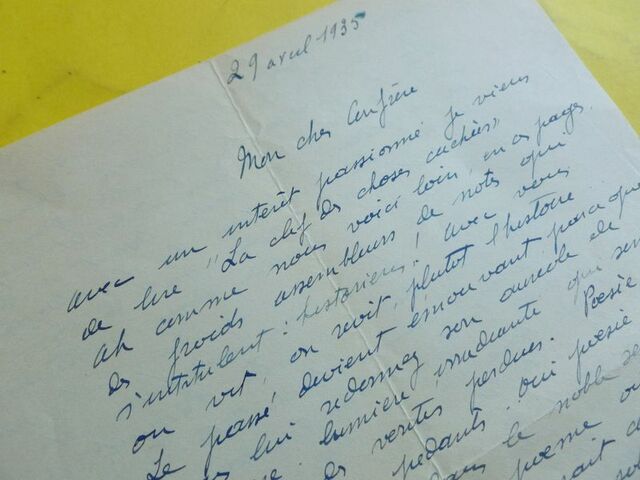 29 avril 1935
Mon cher Confrère
avec un intérêt passionné je viens
de lire "La clef des choses cachées"
Ah comme nous voici loin, en ces pages,
des froids assembleurs de notes qui
s'intitulent : historiens ! avec vous
on vit, on revit, plutôt l'histoire
Le passé devient émouvant parce que
lui redonnez son auréole de
lumière irradiante qui
des vérités perdues. Poésie
pédants. Oui poésie
dans le noble
poème ou